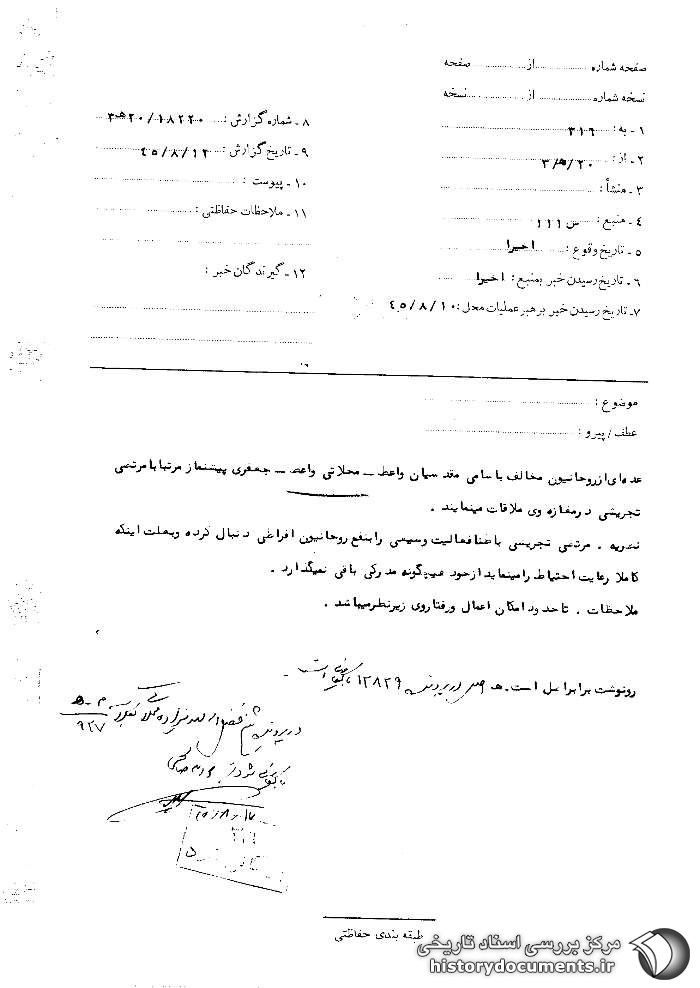 صفحه شماره ............ از ............ صفحه
نسخه شماره ............ از ............ نسخه
۱ - به : ۳۱۶
۲ - از : ۲۰/ﻫ/۳
۳ - منشأ :
۴ - منبع : س ۱۱۱
۵ - تاریخ وقوع : اخیرا
۶ - تاریخ رسیدن خبر بمنبع : اخیرا
۷ - تاریخ رسیدن خبر برهبر عملیات محل : ۴۵/۸/۱۰
۸ - شماره گزارش : ۱۸۲۲۰/۲۰ﻫ۳
۹ - تاریخ گزارش : ۴۵/۸/۱۲
۱۰ - پیوست :
۱۱ - ملاحظات حفاظتی :
۱۲ - گیرندگان خبر :
موضوع :
عطف / پیرو :
عده‌ای از روحانیون مخالف باسامی مقدسیان واعظ – محلاتی واعظ – جعفری پیشنماز مرتبا با مرتضی
تجریشی در مغازه وی ملاقات مینمایند .
نظریه . مرتضی تجریشی باطنا فعالیت وسیعی را بنفع روحانیون افراطی دنبال کرده وبعلت اینکه
کاملا رعایت احتیاط را مینماید از خود هیچگونه مدرکی باقی نمیگذارد .
ملاحظات . تا حدود امکان اعمال ورفتار وی زیر نظر میباشد .
رونوشت برابر اصل است . ﻫ اصل در پرونده ۱۲۸۲۹ بایگانی است
در پرونده شیخ فضل اله محلاتی
م - ﻫ
۹۲۷
بایگانی شود
۴۵/۸/۱۷
۳۱۶
طبقه بندی حفاظتی
مرکز بررسی اسناد تاریخی
historydocuments.ir